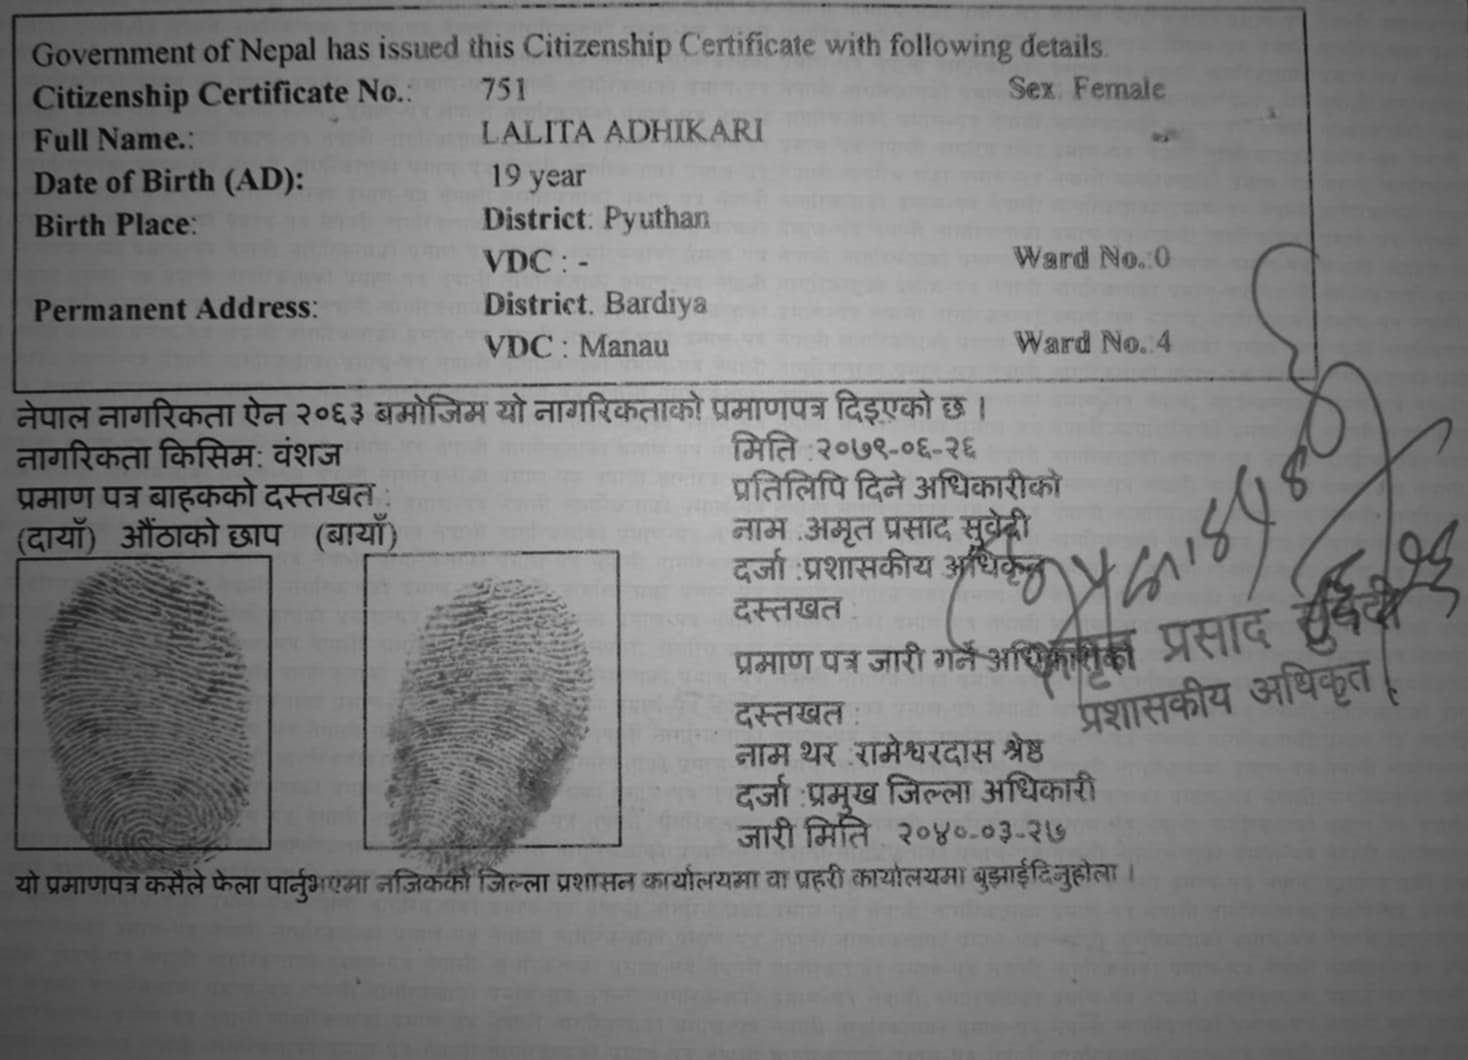 Government of Nepal has issued this Citizenship Certificate with following details.
Citizenship Certificate No.: 751 Sex. Female
Full Name.: LALITA ADHIKARI
Date of Birth (AD): 19 year
Birth Place: District. Pyuthan
VDC : - Ward No.:0
Permanent Address: District. Bardiya
VDC : Manau Ward No.:4
नेपाल नागरिकता ऐन २०६३ बमोजिम यो नागरिकताको प्रमाणपत्र दिइएको छ ।
नागरिकता किसिम: वंशज
प्रमाण पत्र बाहकको दस्तखत :
(दायाँ) औंठाको छाप (बायाँ)
मिति :२०७९-०६-२६
प्रतिलिपि दिने अधिकारीको
नाम :अमृत प्रसाद सुवेदी
दर्जा :प्रशासकीय अधिकृत
दस्तखत :
प्रमाण पत्र जारी गर्ने अधिकारीको
दस्तखत :
नाम थर :रामेश्वरदास श्रेष्ठ
दर्जा :प्रमुख जिल्ला अधिकारी
जारी मिति २०४०-०३-२७
प्रसाद सुवेदी
प्रशासकीय अधिकृत
यो प्रमाणपत्र कसैले फेला पार्नुभएमा नजिकको जिल्ला प्रशासन कार्यालयमा वा प्रहरी कार्यालयमा बुझाईदिनुहोला ।